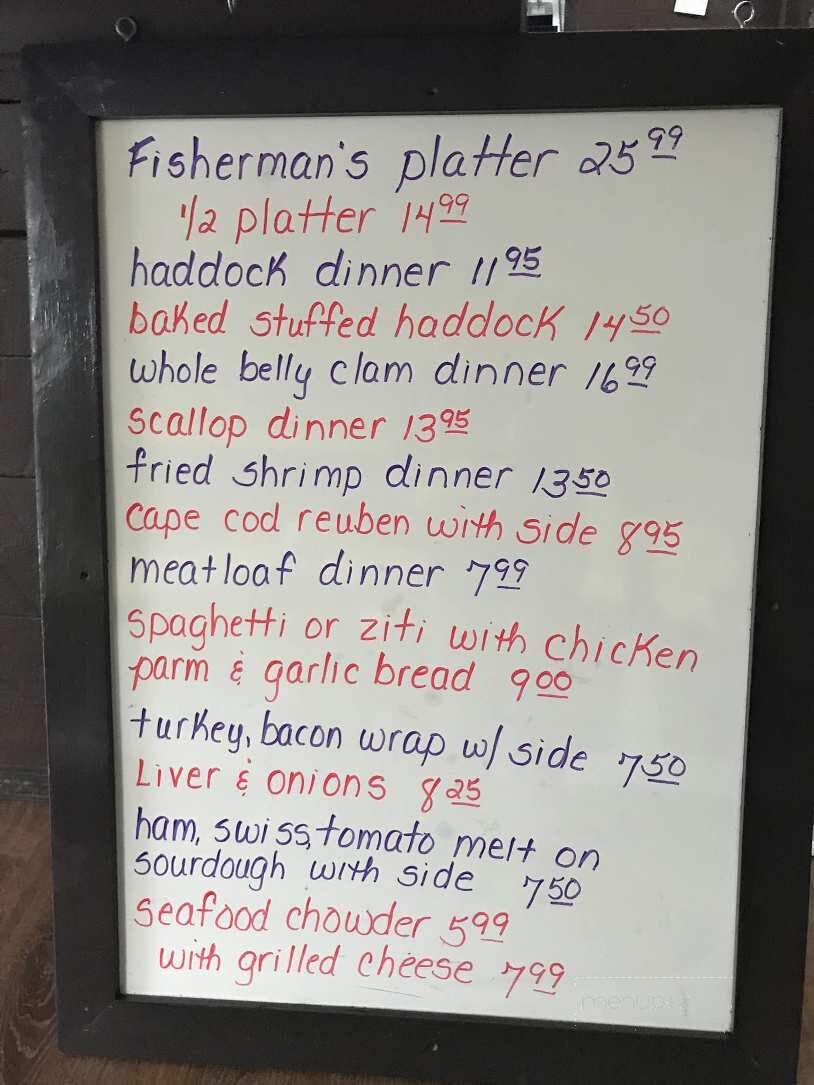 Fisherman's platter 25 99
1/2 platter 14 99
haddock dinner 11 95
baked stuffed haddock 14 50
whole belly clam dinner 16 99
scallop dinner 13 95
fried shrimp dinner 13 50
cape cod reuben with side 8 95
meatloaf dinner 7 99
spaghetti or ziti with chicken
parm & garlic bread 9 00
turkey, bacon wrap w/ side 7 50
Liver & onions 8 25
ham, swiss, tomato melt on
sourdough with side 7 50
seafood chowder 5 99
with grilled cheese 7 99